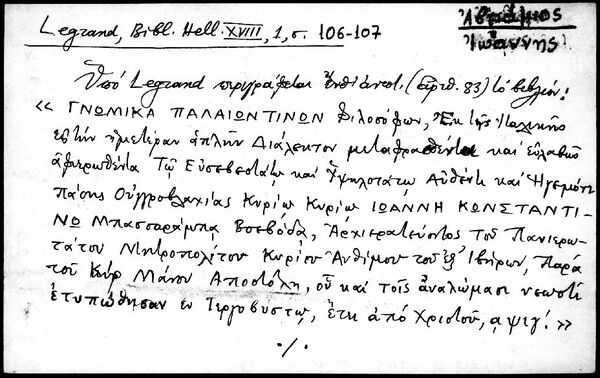 Legrand, Bibl. Hell. XVIII, 1, σ. 106-107
Ἀβράμιος
Ἰωάννης
Ὑπό Legrand περιγράφεται (ἀριθ. 83) τό βιβλίον:
« ΓΝΩΜΙΚΑ ΠΑΛΑΙΩΝ ΤΙΝΩΝ Φιλοσόφων, Ἐκ τῆς Ἰταλικῆς
εἰς τήν ἡμετέραν ἁπλῆν Διάλεκτον μεταφρασθέντα καί εὐλαβῶς
ἀφιερωθέντα Τῷ Εὐσεβεστάτῳ καί Ὑψηλοτάτῳ Αὐθέντῃ καί Ἡγεμόνι
πάσης Οὐγγροβλαχίας Κυρίῳ Κυρίῳ ΙΩΑΝΝΗ ΚΩΝΣΤΑΝΤΙ-
ΝΩ Μπασσαράμπᾳ Βοεβόδᾳ, Ἀρχιερατεύοντος τοῦ Πανιερω-
τάτου Μητροπολίτου Κυρίου Ἀνθίμου τοῦ ἐξ Ἰβήρων, Παρά
τοῦ Κύρ Μάνου Ἀποστόλη, οὗ καί τοῖς ἀναλώμασι νεωστί
ἐτυπώθησαν ἐν Τεργοβύστῳ, ἔτει ἀπό Χριστοῦ, αψιγ! »
./.